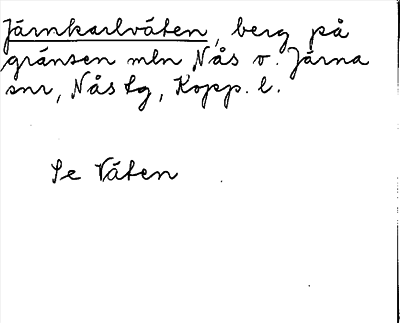 Järnkarlväten, berg på
gränsen mln Nås o. Järna
snr, Nås tg, Kopp. l.
Se Väten